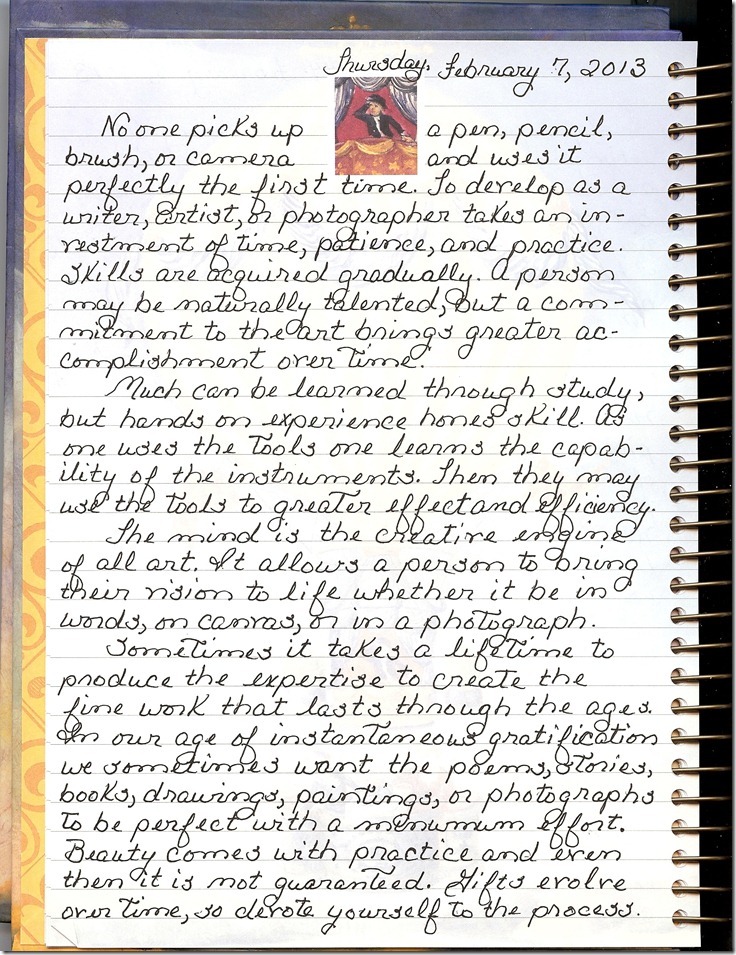 Thursday, February 7, 2013
No one picks up a pen, pencil,
brush, or camera and uses it
perfectly the first time. To develop as a
writer, artist, or photographer takes an in-
vestment of time, patience, and practice.
Skills are acquired gradually. A person
may be naturally talented, but a com-
mitment to the art brings greater ac-
complishment over time.
Much can be learned through study,
but hands on experience hones skill. As
one uses the tools one learns the capab-
ility of the instruments. Then they may
use the tools to greater effect and efficiency.
The mind is the creative engine
of all art. It allows a person to bring
their vision to life whether it be in
words, on canvas, or in a photograph.
Sometimes it takes a lifetime to
produce the expertise to create the
fine work that lasts through the ages.
In our age of instantaneous gratification
we sometimes want the poems, stories,
books, drawings, paintings, or photographs
to be perfect with a minumum effort.
Beauty comes with practice and even
then it is not guaranteed. Gifts evolve
over time, so devote yourself to the process.